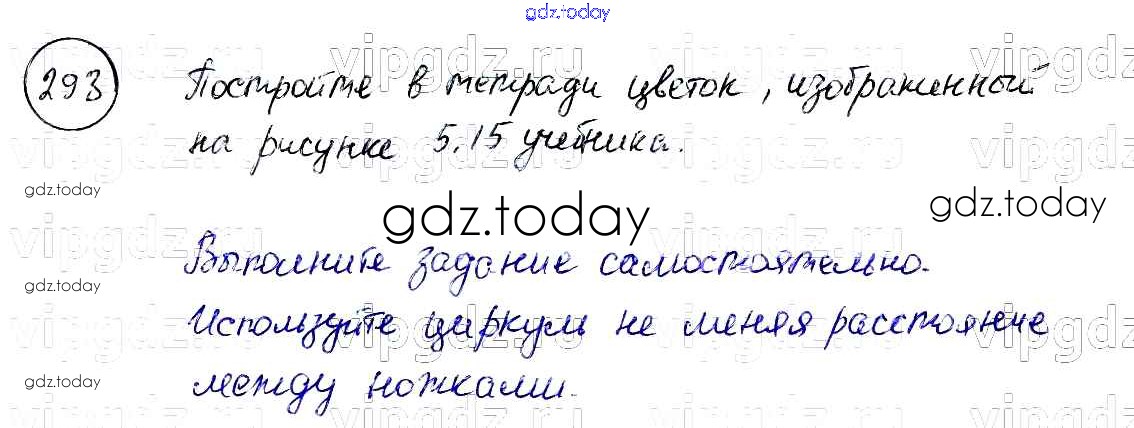 gdz.today
293 Постройте в тетради цветок, изображенный
на рисунке 5.15 учебника.
gdz.today
gdz.today
gdz.today
Выполните задание самостоятельно.
gdz.today
Используйте циркуль не меняя расстояние
gdz.today
между ножками.
vipgdz.ru